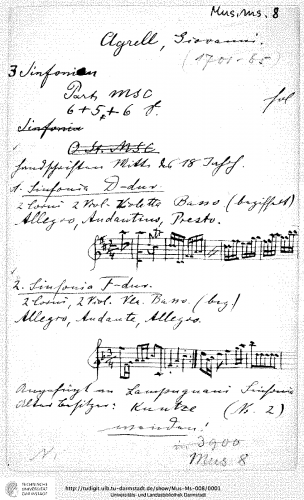 Mus. ms. 8
Agrell, Giovanni.
(1701-65)
3 Sinfonien
Part. MSC fol
6 + 5 + 6 f.
Sinfonia
O St. MSC
Handschriften Mitte des 18 Jahrh.
1. Sinfonia D-dur
2 Corni 2 Viol. Violetta Basso (beziffert)
Allegro, Andantino, Presto.
2. Sinfonia F-dur.
2 Corni, 2 Viol. Vla. Basso. (bez.)
Allegro, Andante, Allegro.
Angefügt an Lampugnani Sinfonia
Alter Besitzer: Kuntze (N. 2)
wenden!
in 3900
Mus 8
TECHNISCHE UNIVERSITÄT DARMSTADT
http://tudigit.ulb.tu-darmstadt.de/show/Mus-Ms-008/0001
Universitäts- und Landesbibliothek Darmstadt